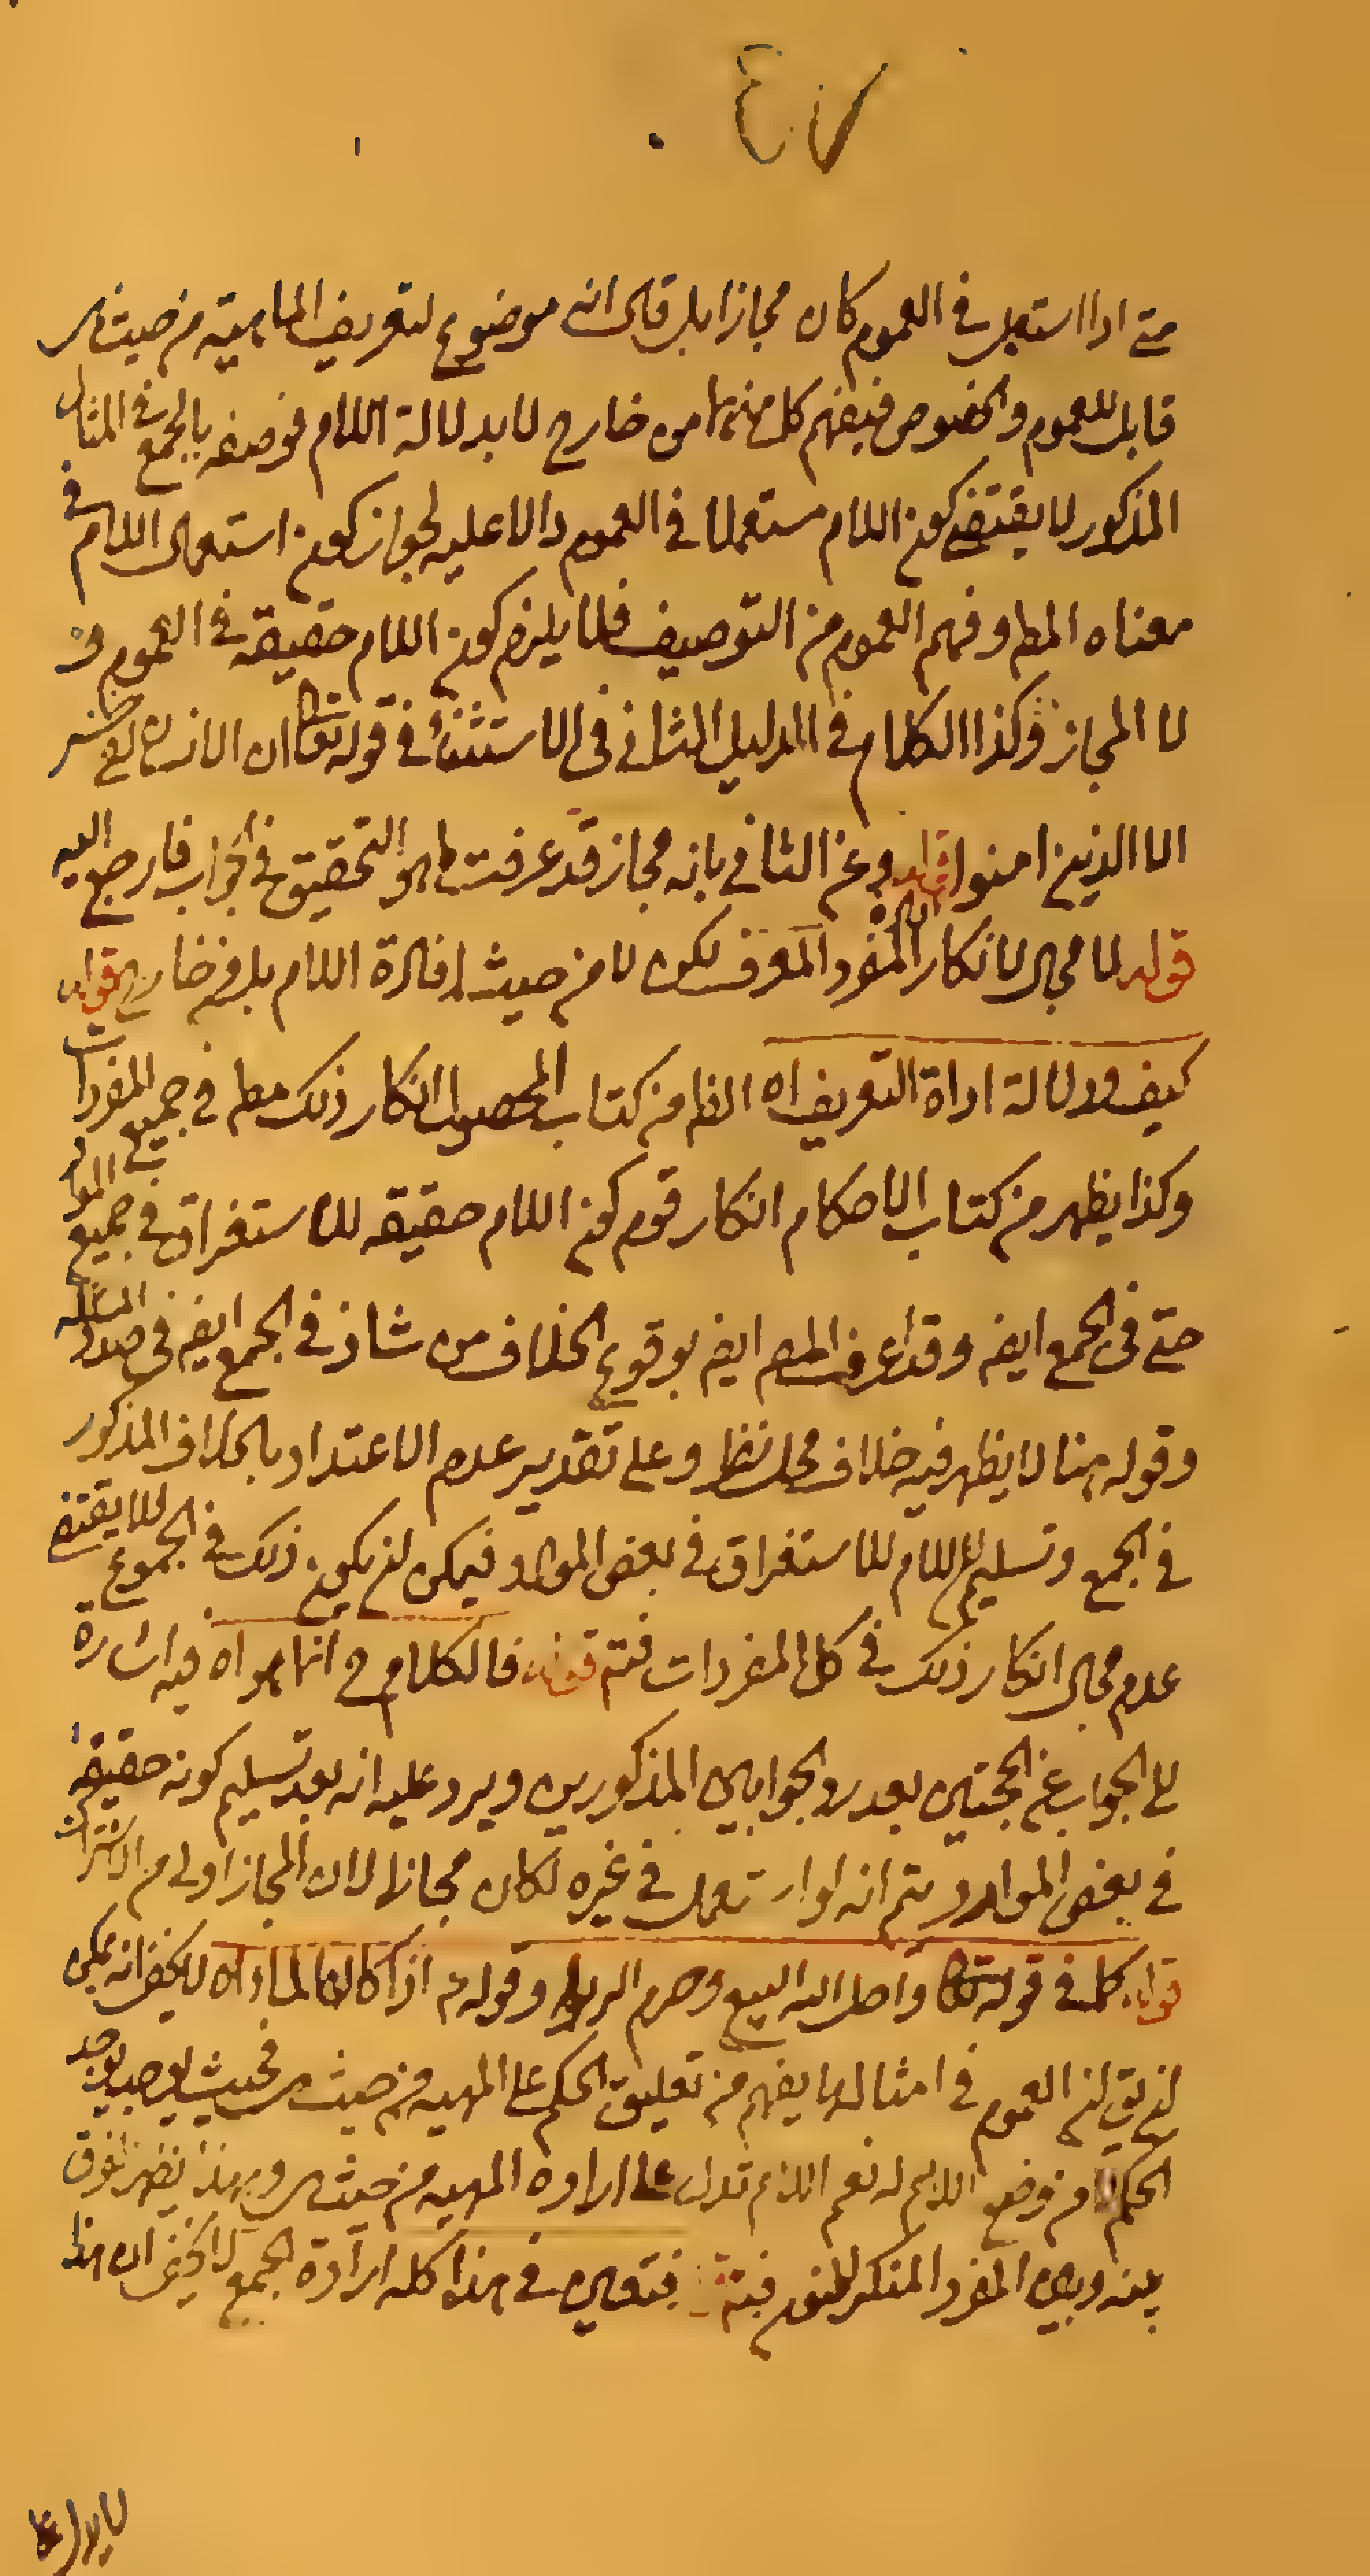 ٤٧
حتى اذا استعمل فى العموم كان مجازا بل قال انه موضوع لتعريف الماهية من حيث هى
قابل للعموم والخصوص فيفهم كل منهما من خارج لا بدلالة اللام فوصفه بالجمع فى المثال
المذكور لا يقتضى كون اللام مستعملا فى العموم دالا عليه لجواز كون استعمال اللام فى
معناه المط وفهم العموم من التوصيف فلا يلزم كون اللام حقيقة فى العموم
لا المجاز وكذا الكلام فى الدليل الثانى فى الاستثناء فى قوله تعالى ان الانسان لفى خسر
الا الذين امنوا قوله وعن الثانى بانه مجاز قد عرفت ما هو التحقيق فى الجواب فارجع اليه
قوله لا مجال لانكار المفرد المعرف لكن لا من حيث افادة اللام بل من خارج قوله
كيف ودلالة اداة التعريف اه الظ من كتاب المحصول انكار ذلك مط فى جميع المفردات
وكذا يظهر من كتاب الاحكام انكار قوم كون اللام حقيقه للاستغراق فى جميع المواد
حتى فى الجمع ايضه وقد اعرف المصم ايضه بوقوع الخلاف من شاذ فى الجمع ايضه فى صدر المسئله
وقوله هنا لا يظهر فيه خلاف محل نظر وعلى تقدير عدم الاعتداد بالخلاف المذكور
فى الجمع وتسليم اللام للاستغراق فى بعض المواد فيمكن ان يكون ذلك فى الجموع فلا يقتضى
عدم مجال انكار ذلك فى كل المفردات فتم قوله فالكلام ح انما هو اه فيه اشارة
الى الجواب عن الحجتين بعد رد الجوابين المذكورين ويرد عليه انه بعد تسليم كونه حقيقة
فى بعض الموارد يتم انه لو استعمل فى غيره لكان مجازا لان المجاز اولى من الاشتراك
قوله كما فى قوله تعالى واحل الله البيع وحرم الربوا وقوله م اذا كان الماء اه لا يخفى انه يمكن
ان يق ان العموم فى امثالها يفهم من تعليق الحكم على المهيه من حيث هى فحيث يوجد يوجد
الحكم لا من وضع اللام له نعم اللام تدل على ارادة المهيه من حيث هى وبهذا يظهر الفرق
بينه وبين المفرد المنكر المنون فتم فتعين فى هذا كله ارادة الجمع لا يخفى ان هذا
لا يدل على